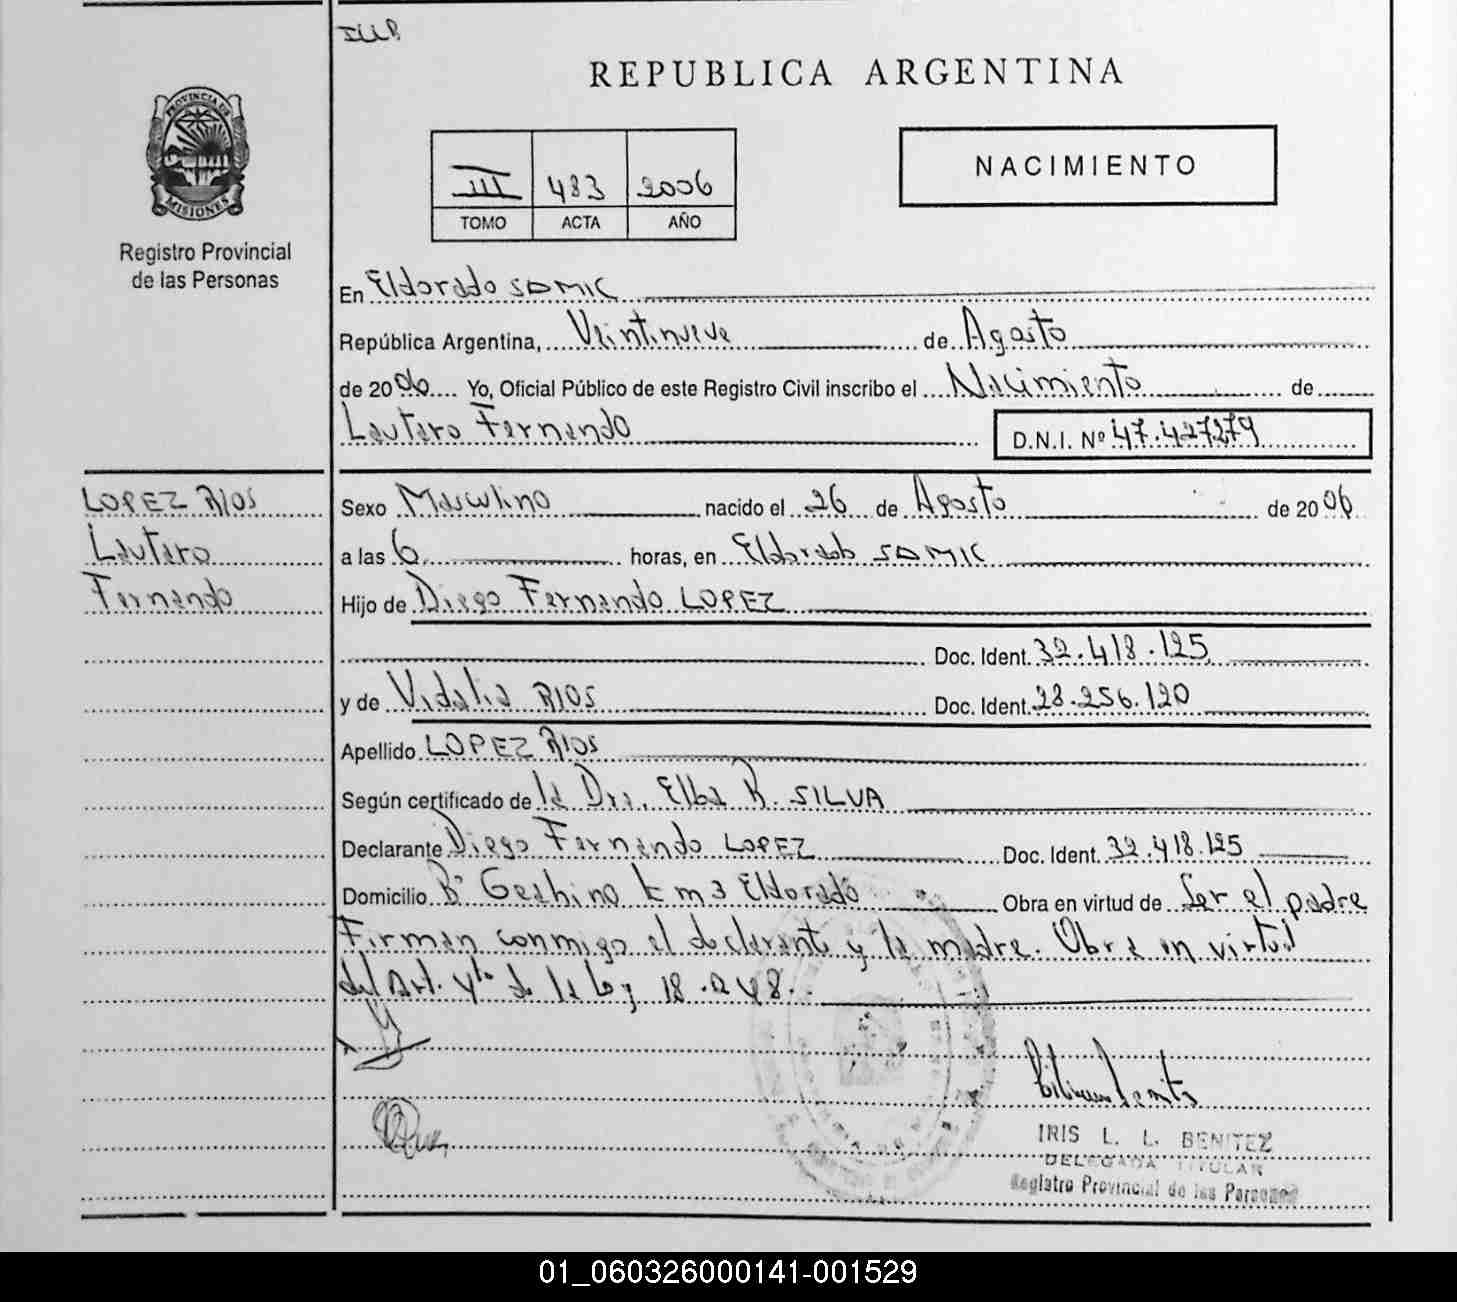 REPUBLICA ARGENTINA
PROVINCIA DE
MISIONES
Registro Provincial
de las Personas
III 483 2006
TOMO ACTA AÑO
NACIMIENTO
En Eldorado SAMIC
República Argentina, Veintinueve de Agosto
de 2006 Yo, Oficial Público de este Registro Civil inscribo el Nacimiento de
Lautaro Fernando D.N.I. Nº 47.427279
LOPEZ RIOS
Lautaro
Fernando
Sexo Masculino nacido el 26 de Agosto de 2006
a las 6 horas, en Eldorado SAMIC
Hijo de Diego Fernando LOPEZ
Doc. Ident. 32.418.125
y de Vidalia RIOS Doc. Ident. 28.256.120
Apellido LOPEZ RIOS
Según certificado de la Dra. Elba R. SILVA
Declarante Diego Fernando LOPEZ Doc. Ident. 32.418.125
Domicilio Bº km 3 Eldorado Obra en virtud de Ser el padre
Firman conmigo el declarante y la madre. Obra en virtud
del Art. 4to de la Ley 18.248.
IRIS L. L. BENITEZ
DELEGADA TITULAR
Registro Provincial de las Personas
01_060326000141-001529